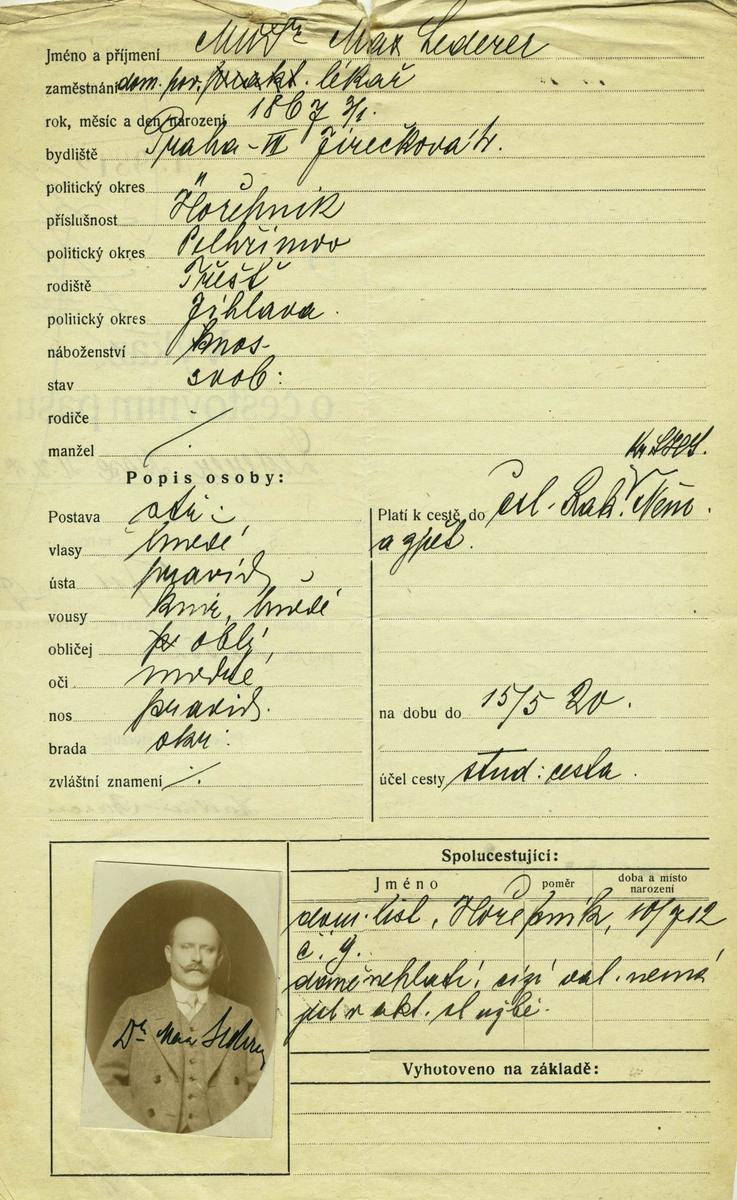 Jméno a příjmení MUDr Max Lederer
zaměstnání dom. por. prakt. lékař
rok, měsíc a den narození 1867 3/1.
bydliště Praha-II Jirečkova tr.
politický okres "
příslušnost Hořepnik
politický okres Pelhřimov
rodiště Třešť
politický okres Jihlava.
náboženství
stav svob:
rodiče
manžel ·/·
Popis osoby:
Postava
vlasy hnědé
ústa pravid.
vousy knír, hnědé
obličej oblý,
oči modré,
nos pravid.
brada okr:
zvláštní znamení ·/·
Platí k cestě do čsl. Rak. Něm.
a zpět.
na dobu do 15/5 20.
účel cesty stud: cesta.
Spolucestující:
Jméno poměr doba a místo narození
dom. list, Hořepnik, 10/7 12
č. 9.
daně neplatí, cizí val. nemá
jest v akt. službě.
Vyhotoveno na základě:
Dr Max Lederer